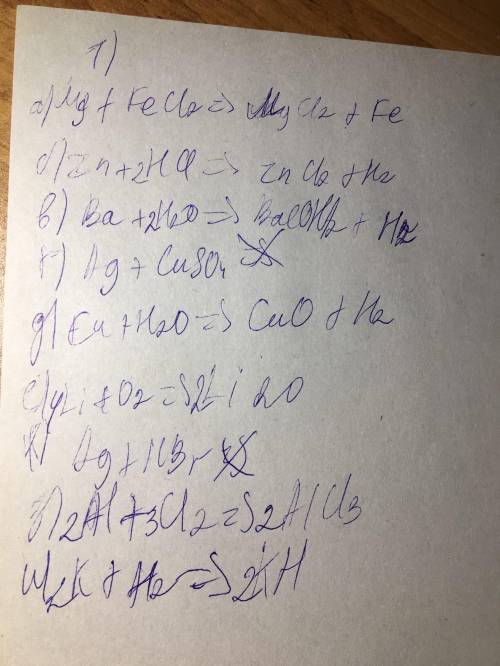 1)
а) Mg + FeCl2 => MgCl2 + Fe
б) Zn + 2HCl => ZnCl2 + H2
в) Ba + 2H2O => Ba(OH)2 + H2
г) Ag + CuSO4 =>
д) Cu + H2O => CuO + H2
е) 4Li + O2 => 2Li2O
Ag + HBr
з) 2Al + 3Cl2 => 2AlCl3
и) 2K + H2 => 2KH